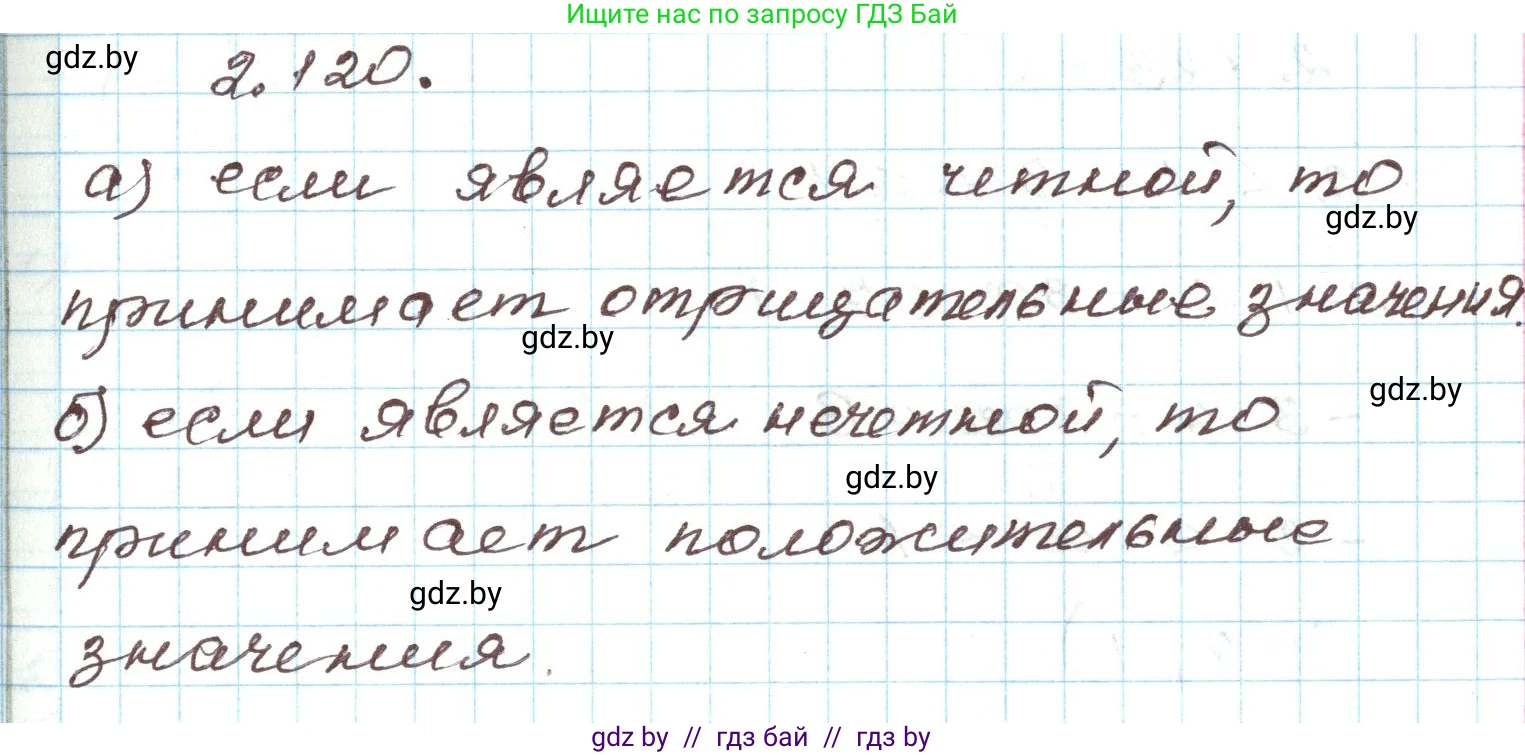 Ищите нас по запросу ГДЗ Бай
gdz.by
2.120.
а) если является четной, то
gdz.by
принимает отрицательные значения.
gdz.by
gdz.by
б) если является нечетной, то
gdz.by
принимает положительные
gdz.by
значения.
gdz by // гдз бай // гдз by